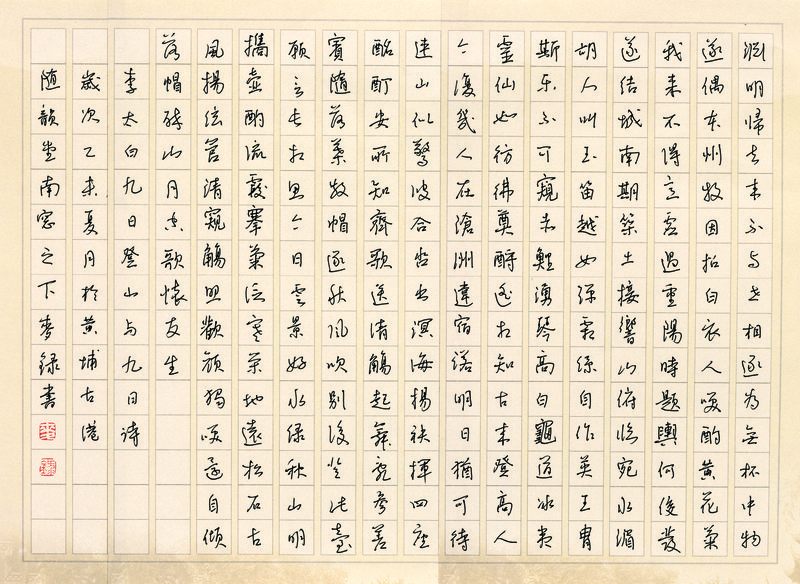 渊明歸去来不与世相逐为無杯中物
遂偶本州牧因招白衣人笑酌黄花菊
我来不得意虚過重陽時題輿何俊發
遂结城南期築土接響山俯临宛水湄
胡人叫玉笛越女弹霜絲自作英王胄
斯乐不可窺赤鯉湧琴高白龜道冰夷
靈仙如彷彿奠酹遥相知古来登高人
今復幾人在滄洲違宿诺明日猶可待
連山似驚波合沓出溟海揚袂揮四座
酩酊安所知齊歌送清觴起舞亂参差
賓隨落葉散帽逐秋风吹别後登此臺
願言长相思今日雲景好水绿秋山明
攜壺酌流霞搴菊泛寒荣地遠松石古
風揚弦管清窺觴照歡顔獨笑還自傾
落帽醉山月空歌懷友生
李太白九日登山与九日诗
歲次乙未夏月於黄埔古港
随韻堂南窓之下麥録書